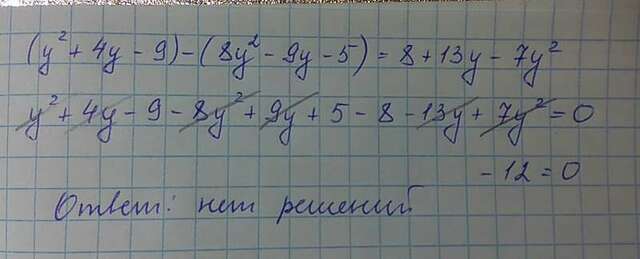 (y² + 4y - 9) - (8y² - 9y - 5) = 8 + 13y - 7y²
y² + 4y - 9 - 8y² + 9y + 5 - 8 - 13y + 7y² = 0
- 12 = 0
Ответ: нет решений.